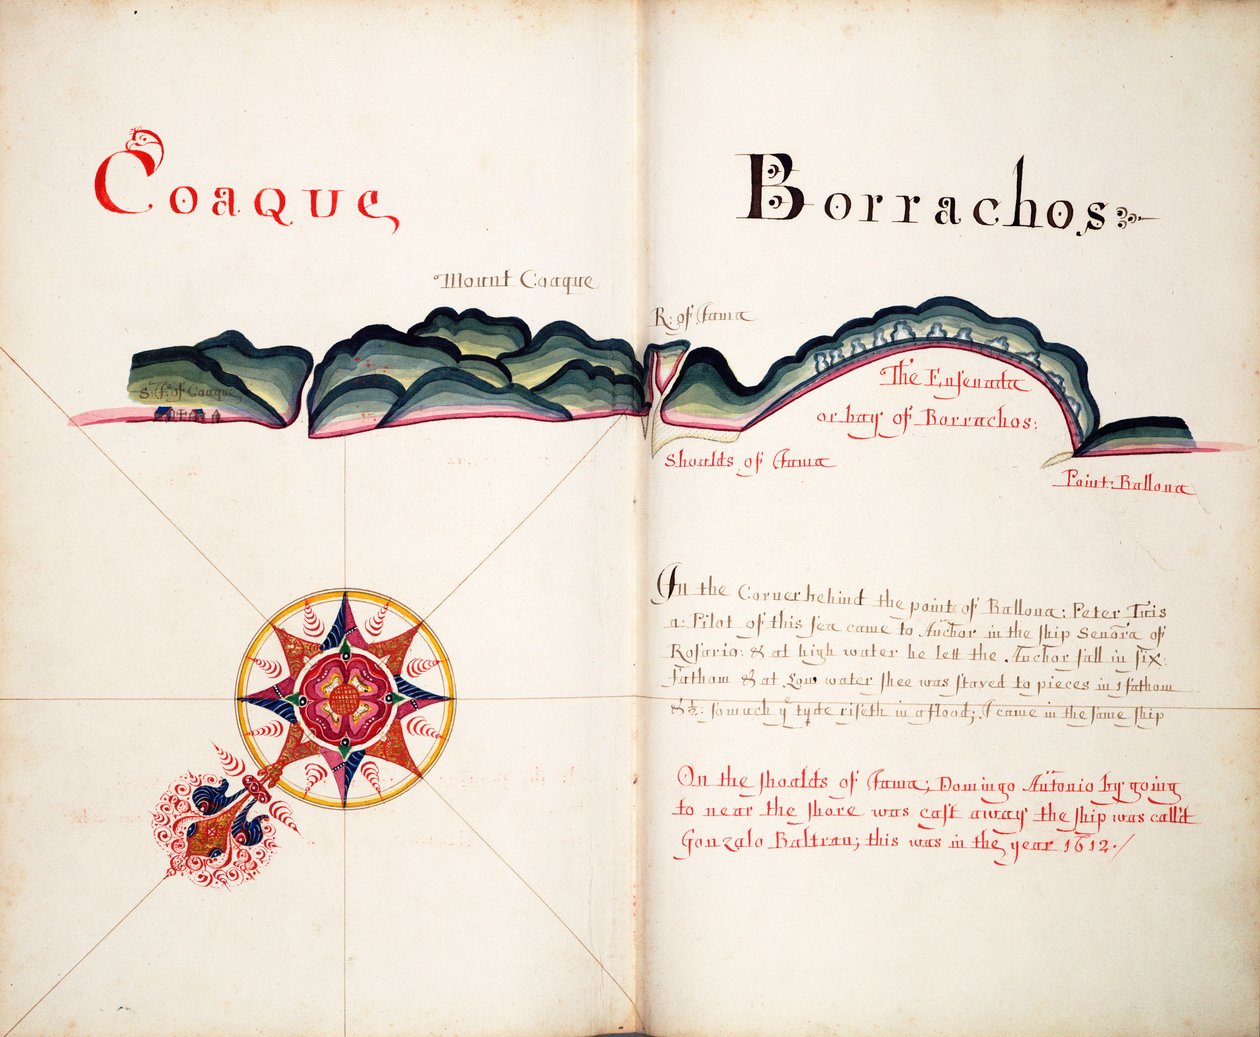 Coaque
Borrachos
Mount Coaque
R: of Jama
St. Jo. of Coaque
The Ensenada
or bay of Borrachos:
Shoalds of Jama
Point: Ballona
In the Corner behind the point of Ballona: Peter Tris
a: Pilot of this sea came to Anchor in the ship Senora of
Rosario: & at high water he lett the Anchor fall in six:
fathom & at Low water shee was staved to pieces in 1 fathom
& ½: so much ye tyde riseth in a flood; I came in the same ship
On the shoalds of Jama; Domingo Antonio by going
to near the shore was cast away the ship was call'd
Gonzalo Baltran; this was in the year 1612./